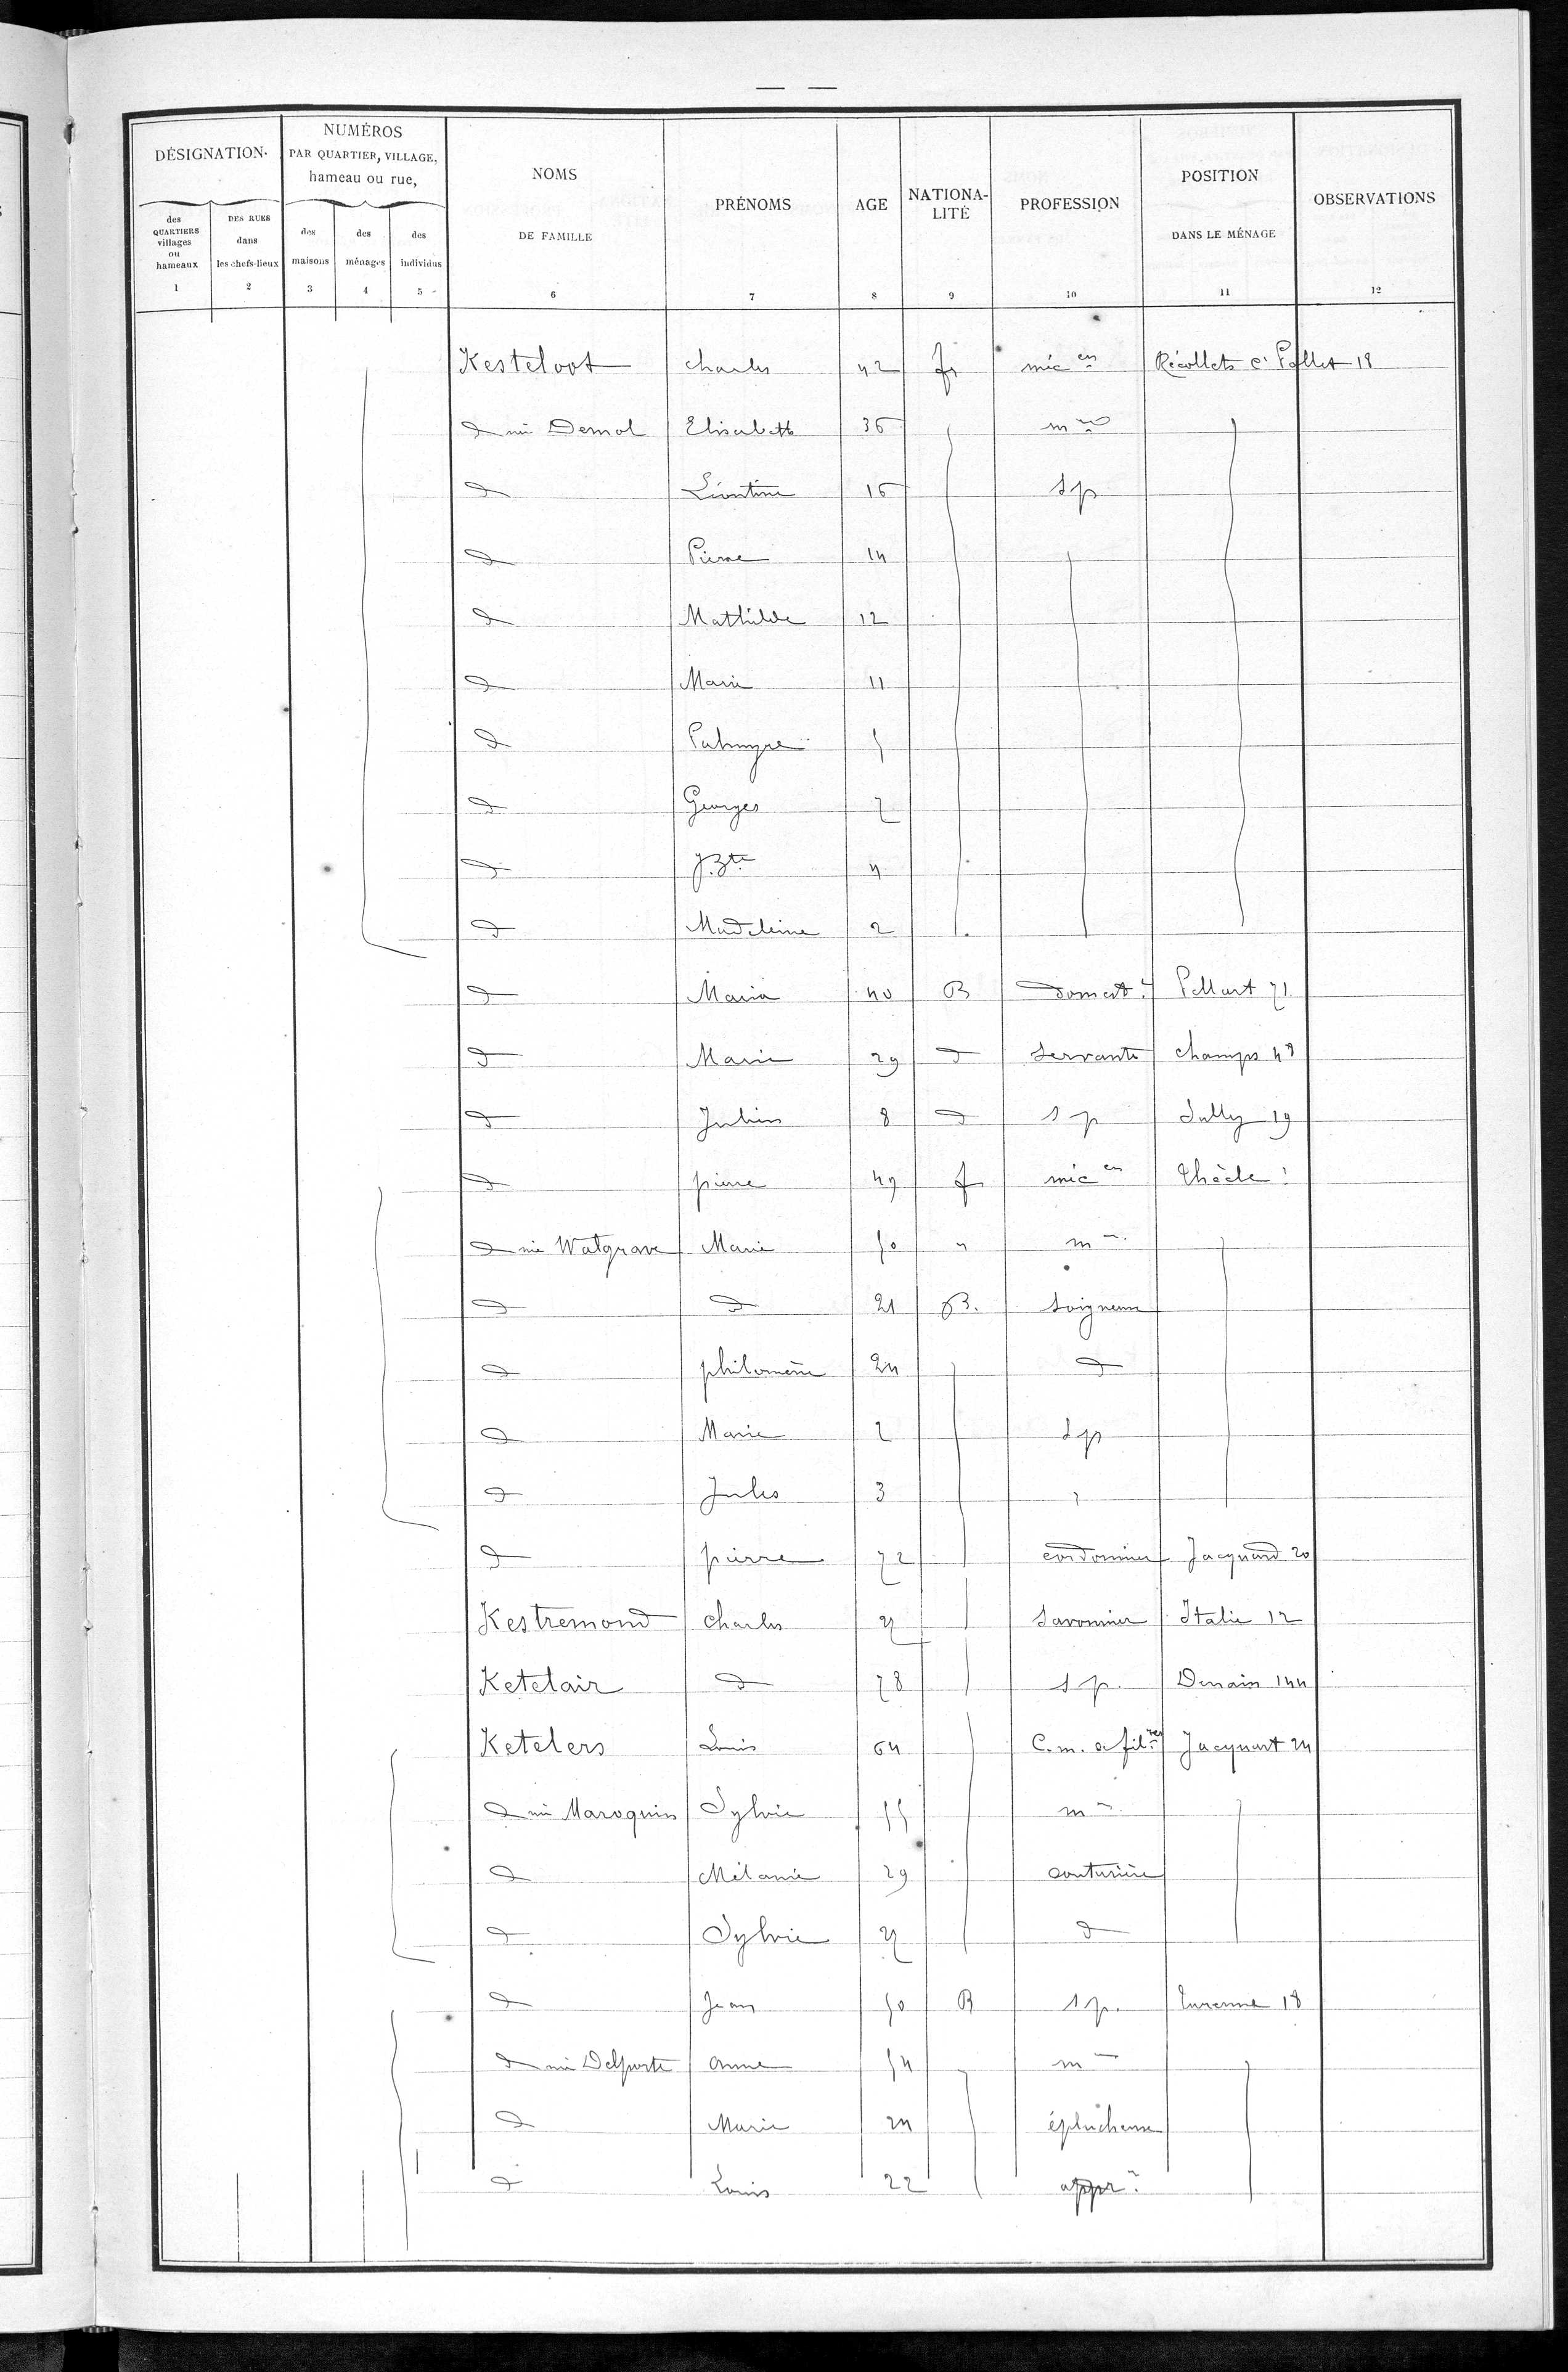 — —
DÉSIGNATION
NUMÉROS
PAR QUARTIER, VILLAGE,
hameau ou rue,
NOMS
DE FAMILLE
PRÉNOMS
AGE
NATIONA-
LITÉ
PROFESSION
POSITION
DANS LE MÉNAGE
OBSERVATIONS
des
QUARTIERS
villages
ou
hameaux
DES RUES
dans
les chefs-lieux
des
maisons
des
ménages
des
individus
1 2 3 4 5 6 7 8 9 10 11 12
Kesteloot charles 42 fr méc en Récollets c. Pollet 18
d née Demol Elisabeth 36 m
d Léontine 16 sp
d Pierre 14
d Mathilde 12
d Marie 11
d Palmyre
d Georges 7
d J. Bte 4
d Madeleine 2
d Maria 40 B domest. Pellart 71
d Marie 29 d servante champs 48
d Julien 8 d sp Sully 19
d pierre 49 f méc en thècle
d née Watgrave Marie 50 " m
d d 21 B. soigneuse
d philomène 24 d
d Marie 2 sp
d Jules 3 "
d pierre 72 cordonnier Jacquard 20
Kestremond charles 27 savonnier Italie 12
Ketelair d 78 sp. Denain 144
Ketelers Louis 64 C. m. de fil res Jacquart 24
d née Maroquin Sylvie 55 m
d Mélanie 29 couturière
d Sylvie 27 d
d Jean 50 B sp. Turenne 18
d née Delporte anne 54 m
d Marie 24 éplucheuse
d Louis 22 appr.